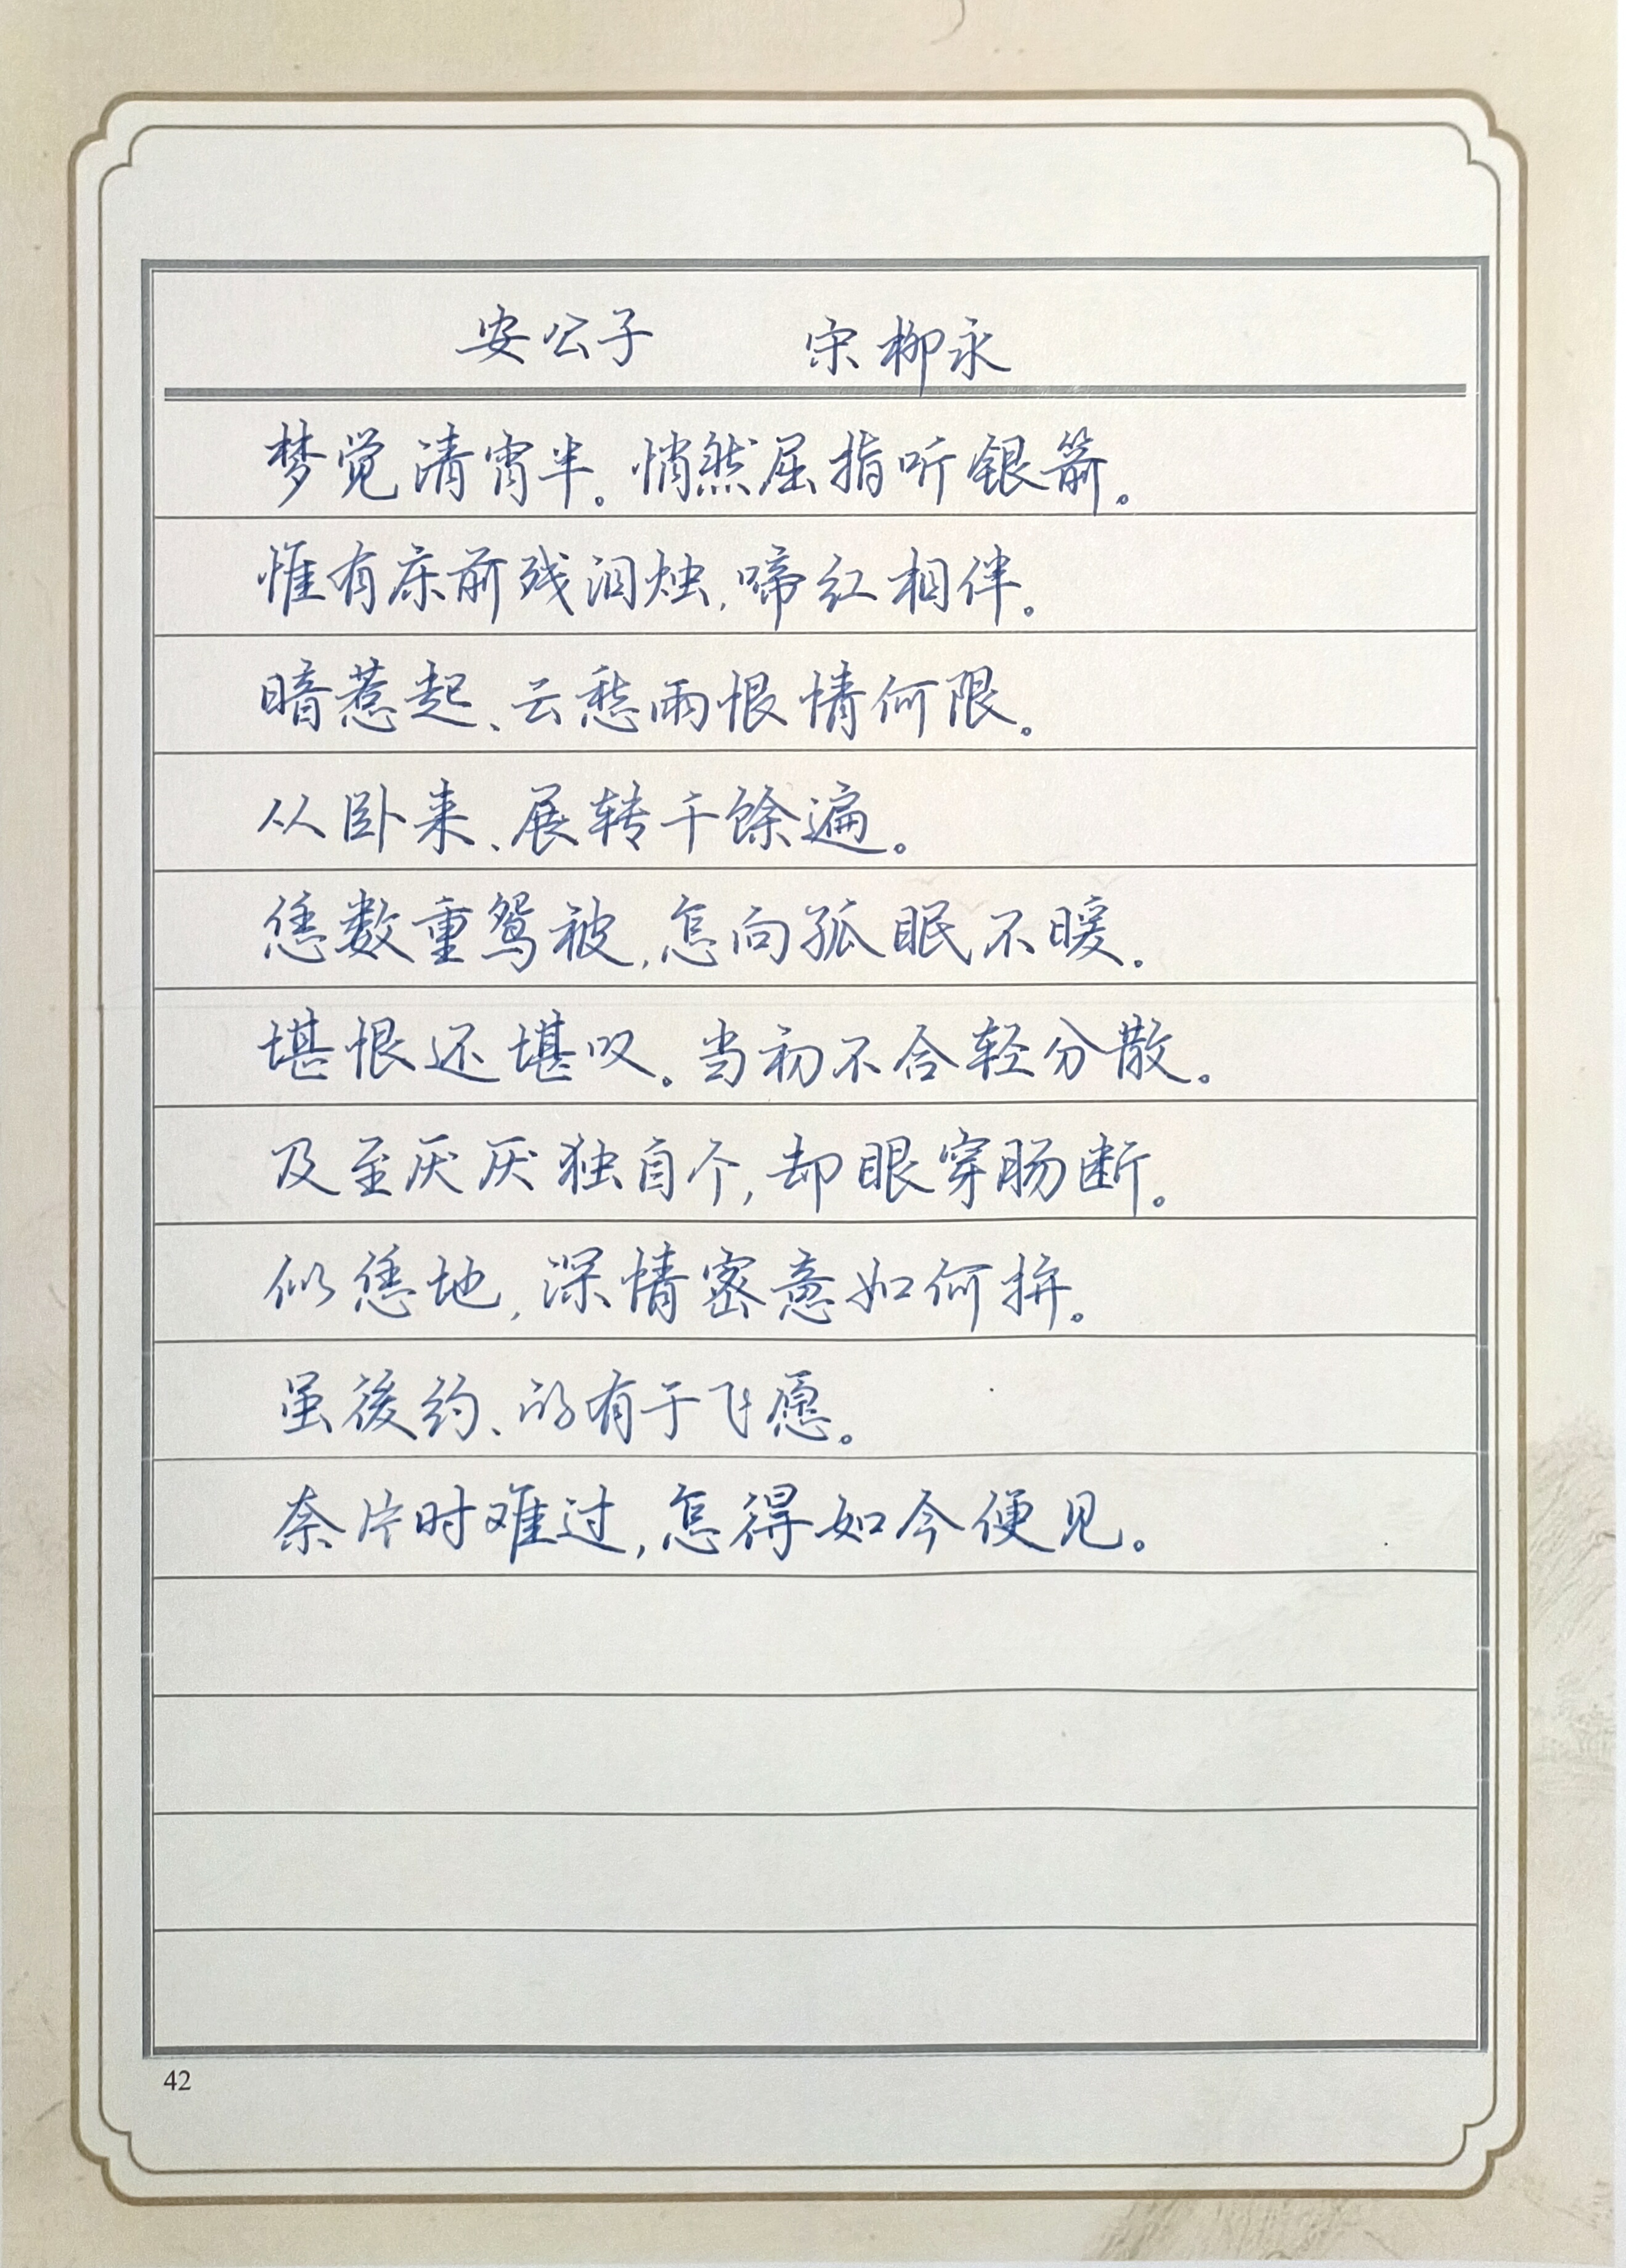 安公子 宋 柳永
梦觉清宵半。悄然屈指听银箭。
惟有床前残泪烛,啼红相伴。
暗惹起、云愁雨恨情何限。
从卧来、展转千馀遍。
恁数重鸳被,怎向孤眠不暖。
堪恨还堪叹。当初不合轻分散。
及至厌厌独自个,却眼穿肠断。
似恁地,深情密意如何拚。
虽後约、的有于飞愿。
奈片时难过,怎得如今便见。
42